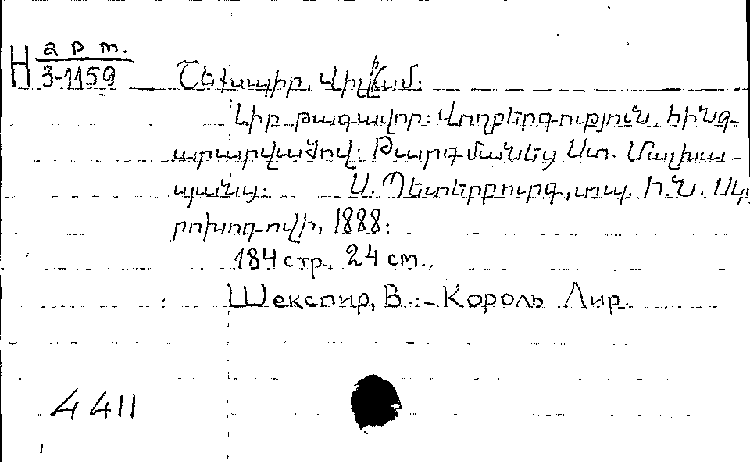 H арт.
3-1159
Շեքսպիր, Վիլյամ.
Լիր թագավոր: Վողբերգություն հինգ
արարվածով: Թարգմանեց Ստ. Մալխա-
սյանց: Ս. Պետերբուրգ, տպ. Ի. Ն. Սկո
րոխոդովի, 1888:
184 стр. 24 см.
Шекспир, В. :- Король Лир.
4411